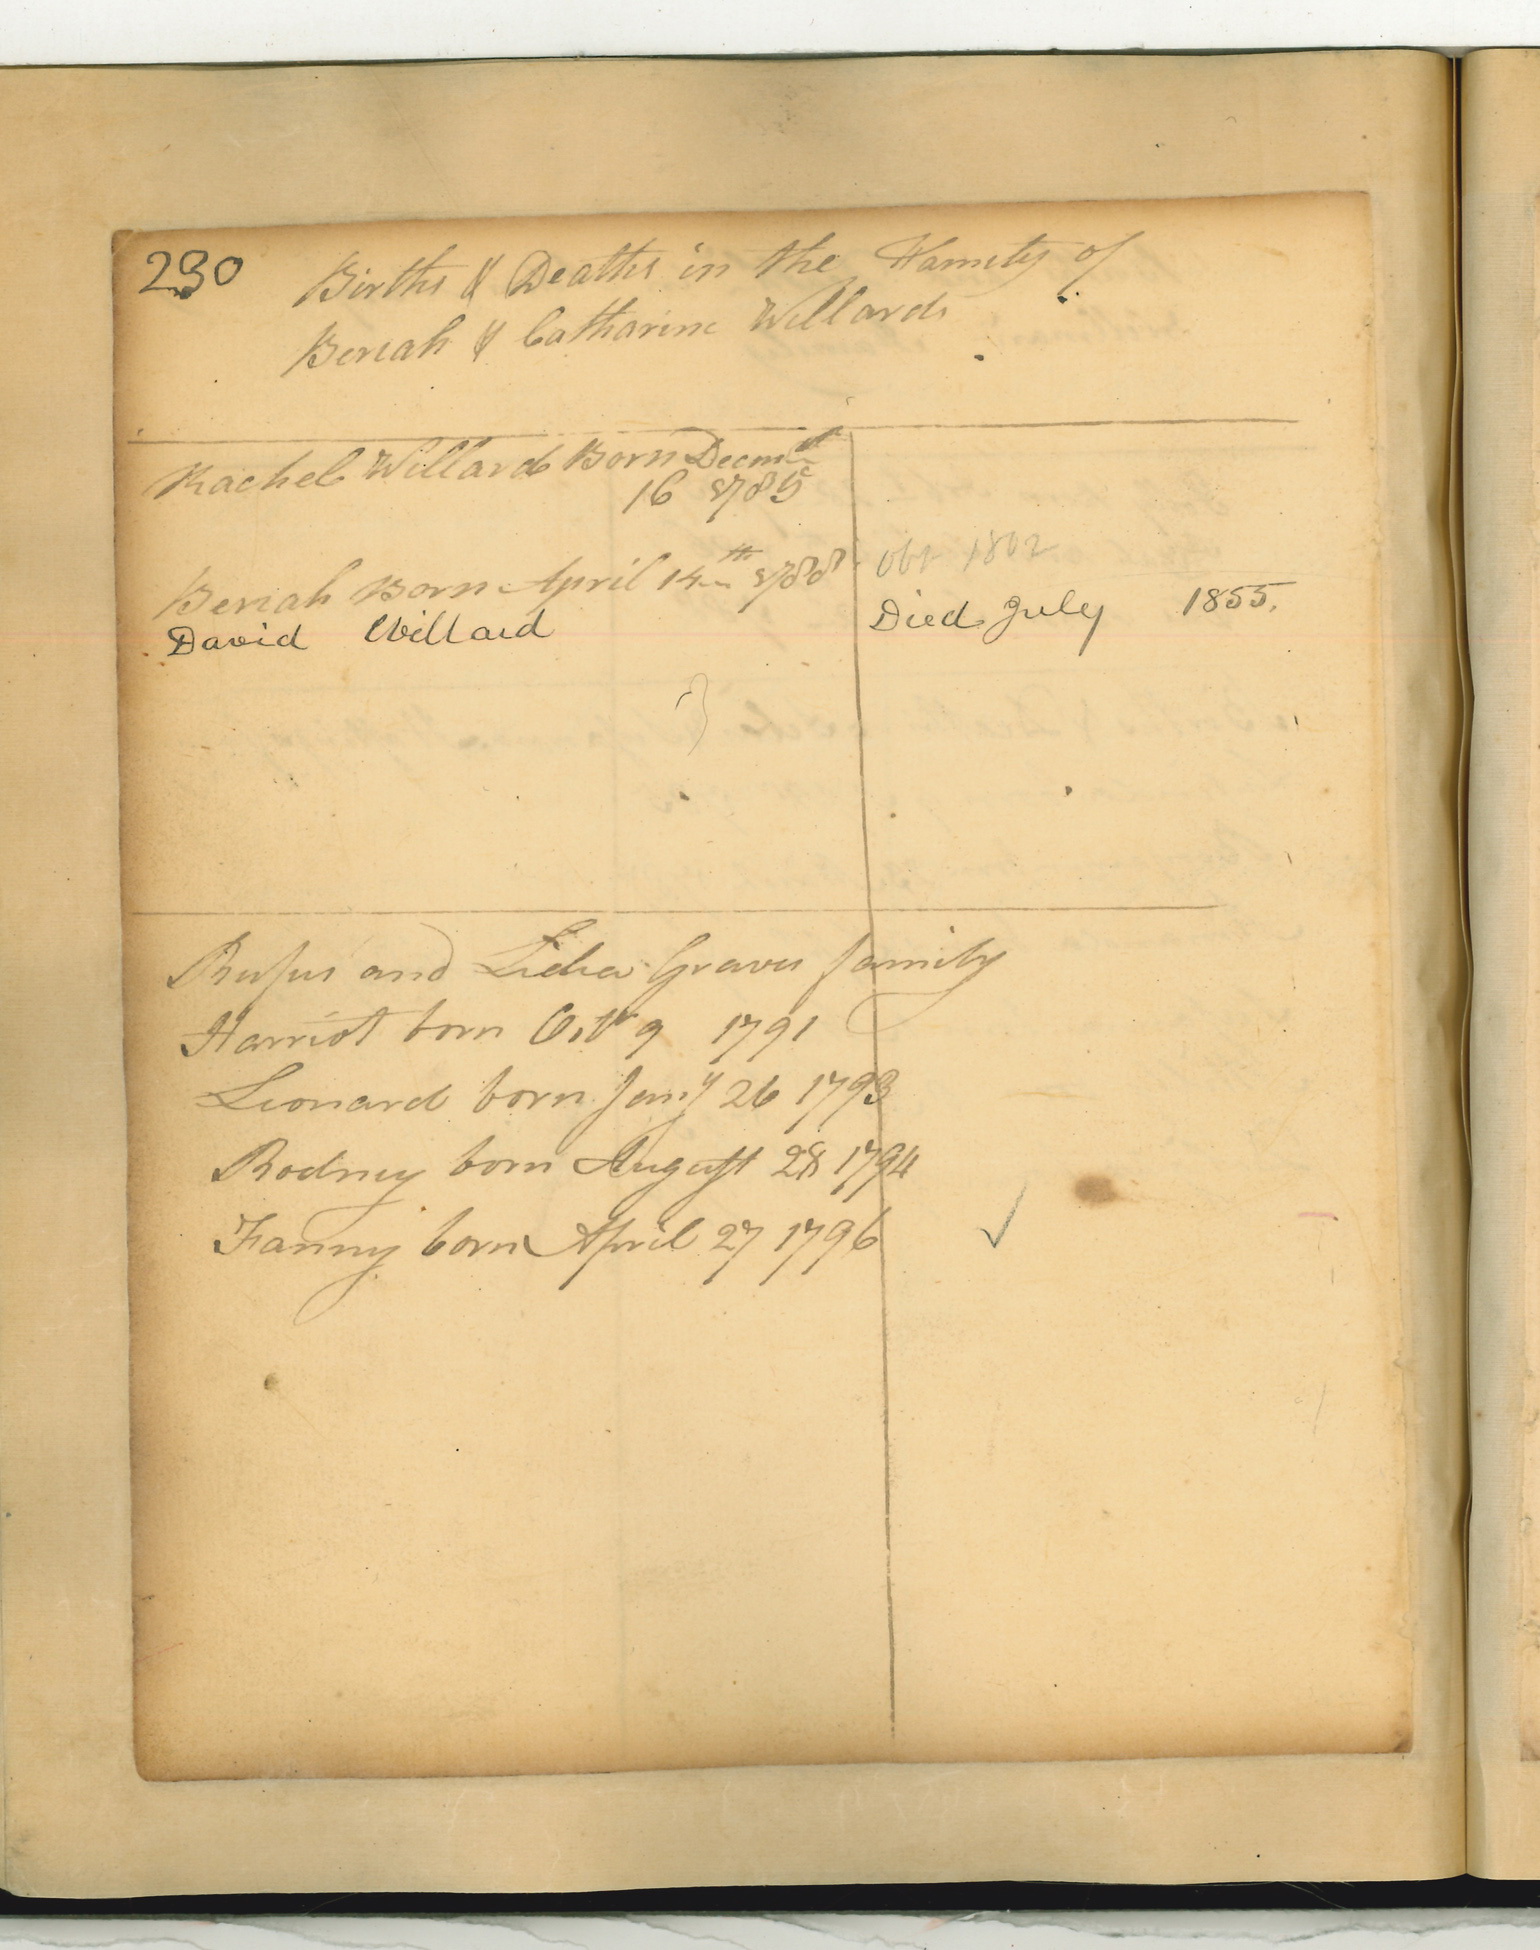 230
Births & Deaths in the Family of
Beriah & Catharine Willard
Rachel Willard Born Decm
16 1785
Beriah Born April 14th 1788 obt 1802
David Willard Died July 1855.
Rufus and Lidia Graves family
Harriot born Octr 9 1791
Leonard born Jany 26 1793
Rodney born August 28 1794
Fanny born April 27 1796